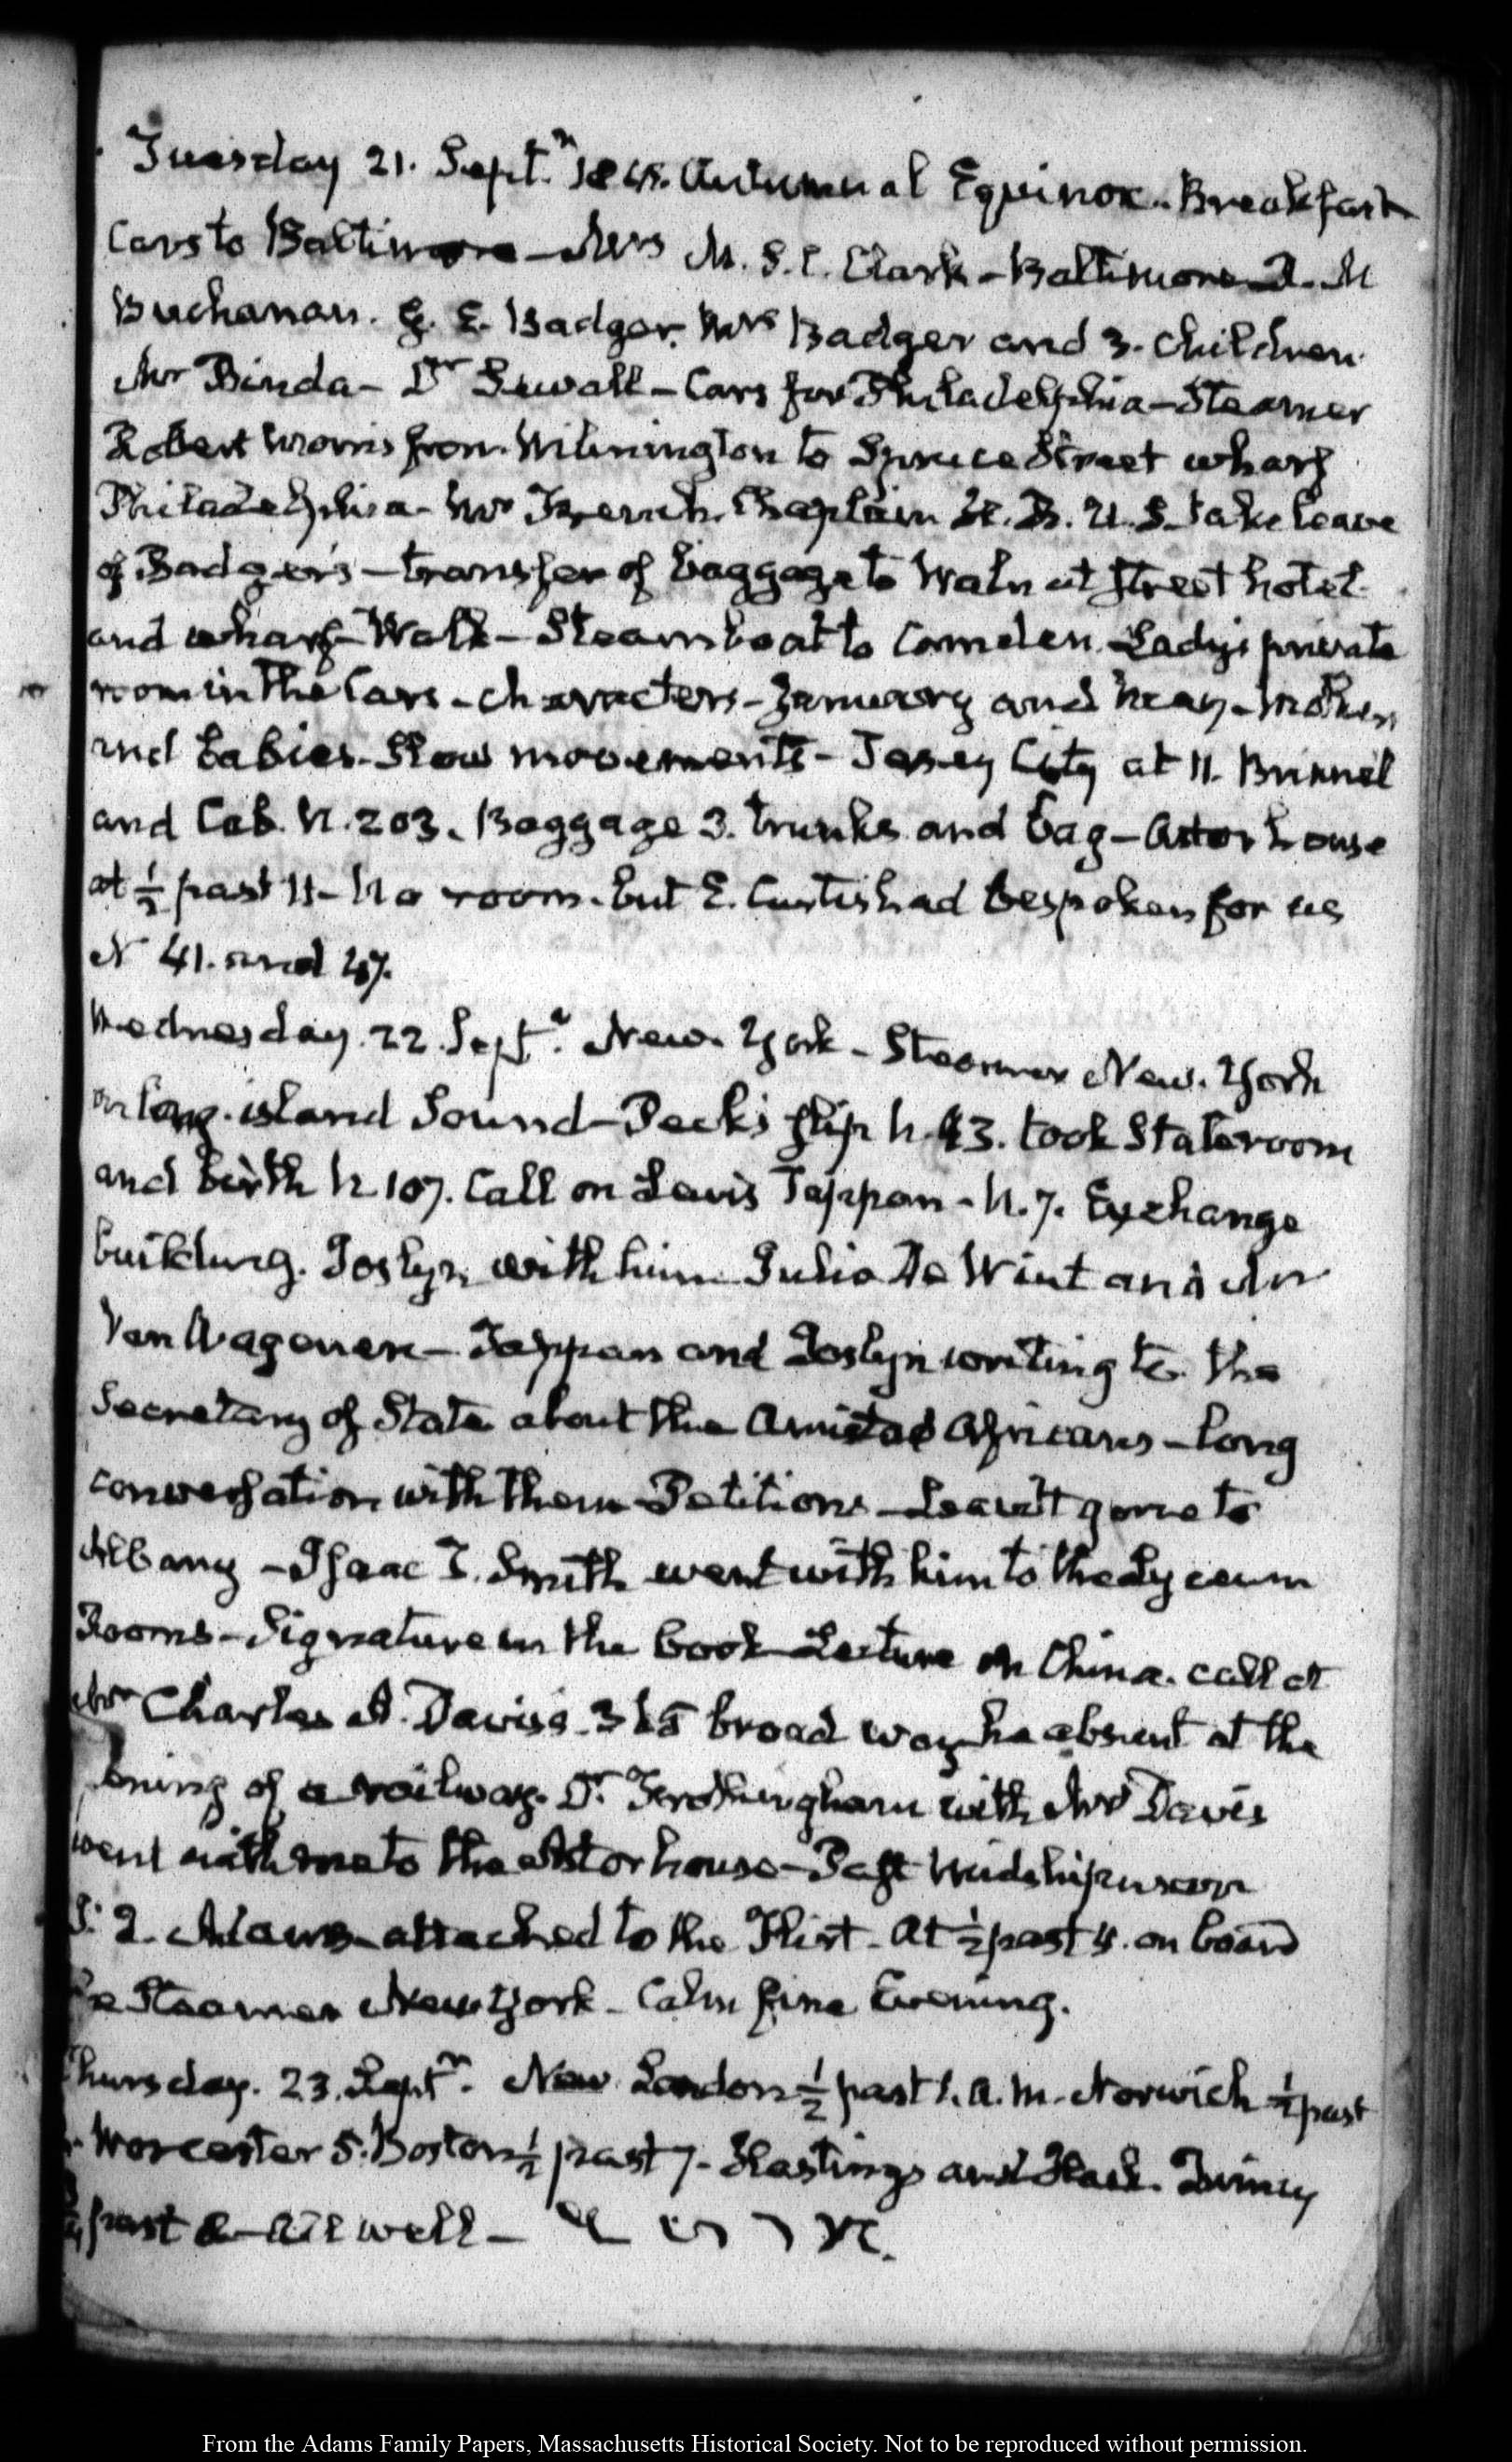 Tuesday 21. Septr. 1841. Autumnal Equinox. Breakfast
Cars to Baltimore — Mrs M. S. C. Clark — Baltimore. M
Buchanan. G. E. Badger. Mrs Badger and 3. children
Mr Binda — Dr Sewall — Cars for Philadelphia — Steamer
Robert Morris from Wilmington to Spruce Street wharf
Philadelphia — Mr French Chaplain U. S. take leave
of Badger's — transfer of baggage to Walnut street hotel
and wharf — Walk — Steamboat to Camden. Lady's private
room in the Cars — characters — January and May —
and babies. Slow movements — Jersey City at 11.
and Cab. N. 203. Baggage 3. trunks and bag — Astor house
at ½ past 11 — No room. but E. Curtis had bespoken for us
N 41. and 47.
Wednesday. 22. Septr. New-York — Steamer New-York
on long-island Sound — Peck's slip N. 43. took Stateroom
and birth N. 107. Call on Lewis Tappan — N. 7. Exchange
building. Joslyn with him Julia De Wint and Mr
Van Wagenen — Tappan and Joslyn writing to the
Secretary of State about the Amistad Africans — long
conversation with them Petitions — Leavitt gone to
Albany — Isaac T. Smith went with him to the Lyceum
Rooms — Signature in the book — Lecture on China. call at
Mr Charles A. Davis's 365 broad way he absent at the
opening of a railway. Dr Frothingham with Mrs Davis
went with me to the Astor house — Past Midshipman
J. Q. Adams — attached to the Flirt — At ½ past 4. on board
the Steamer New York — Calm fine Evening.
Thursday. 23. Septr. New London ½ past 1. A.M. Norwich ½ past
Worcester 5. Boston ½ past 7. Hastings and Hack. Quincy
past 8 — All well —
From the Adams Family Papers, Massachusetts Historical Society. Not to be reproduced without permission.